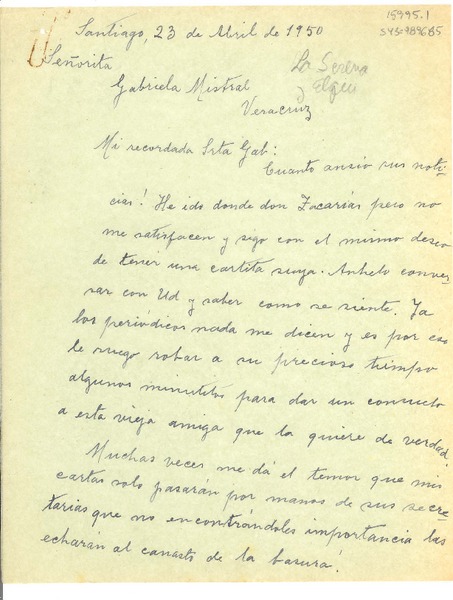 15995.1
Santiago, 23 de Abril de 1950
Señorita
Gabriela Mistral
La Serena
y Elqui
Veracruz
Mi recordada Srta Gab:
Cuanto ansío sus noti-
cias! He ido donde don Zacarías pero no
me satisfacen y sigo con el mismo deseo
de tener una cartita suya. Anhelo conver-
sar con Ud y saber como se siente. Ya
los periódicos nada me dicen y es por eso
le ruego robar a su precioso tiempo
algunos minutitos para dar un consuelo
a esta vieja amiga que la quiere de verdad!
Muchas veces me dá el temor que mis
cartas solo pasarán por manos de sus secre-
tarias que no encontrándoles importancia las
echarán al canasto de la basura!